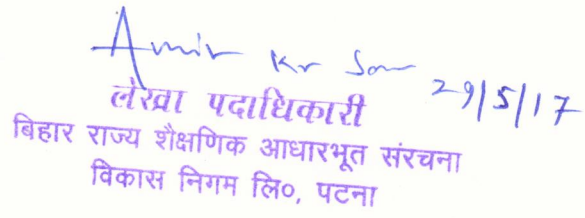 Amir Kr 29/5/17
लेखा पदाधिकारी
बिहार राज्य शैक्षणिक आधारभूत संरचना
विकास निगम लि०, पटना